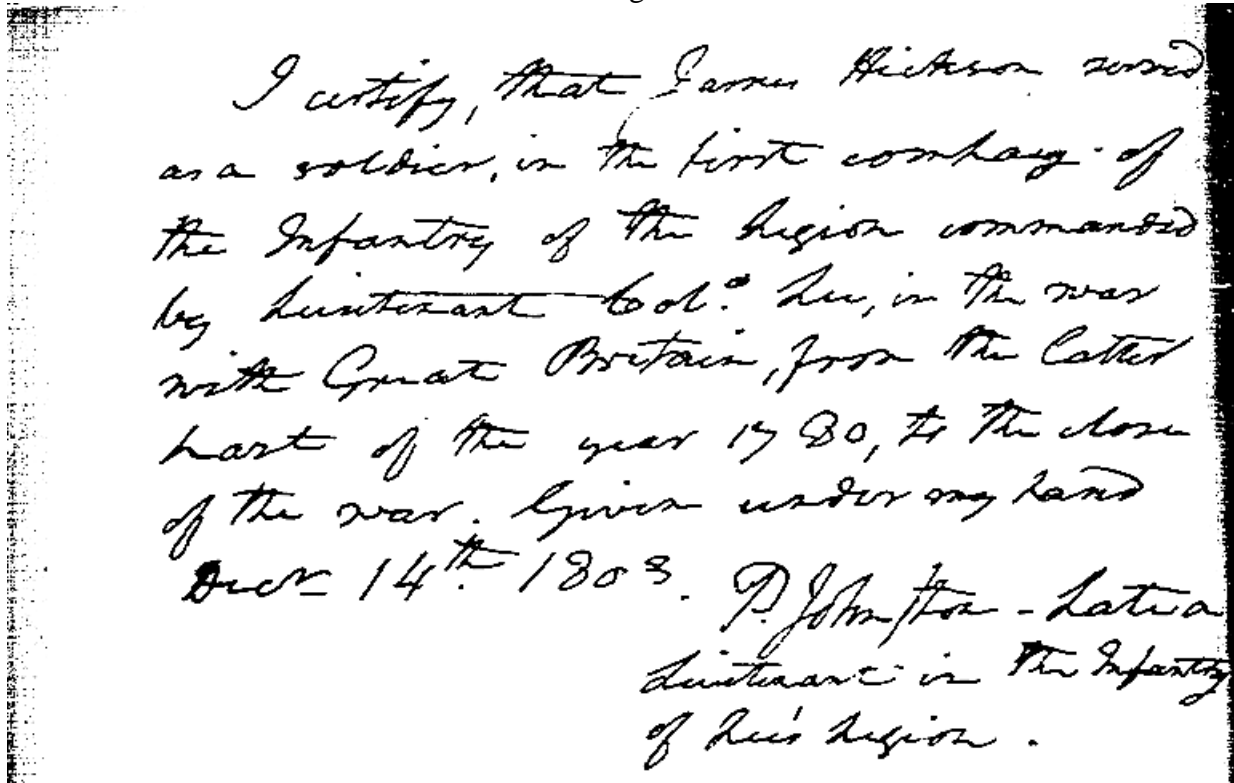 I certify, that James Hickson served
as a soldier, in the first company of
the Infantry of the Legion commanded
by Lieutenant Col.º Lee, in the war
with Great Britain, from the latter
part of the year 1780, to the close
of the war. Given under my hand
Decr 14th. 1803.
P. Johnston - Late a
Lieutenant in the Infantry
of Lee's Legion.